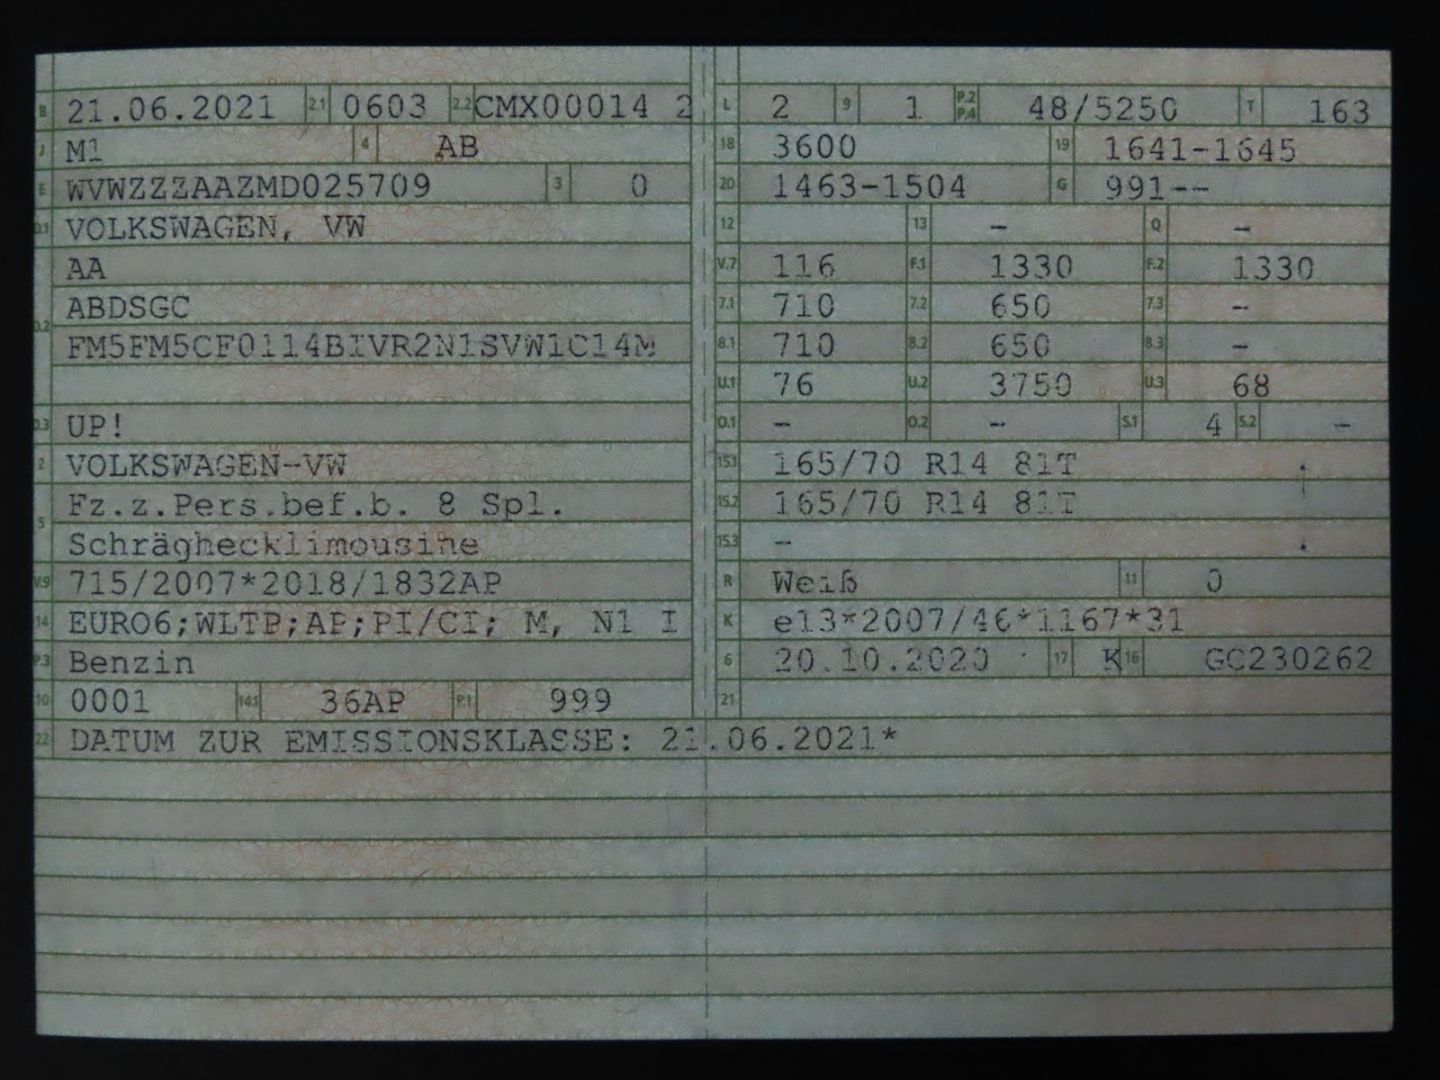 B 21.06.2021 2.1 0603 2.2 CMX00014 2
J M1 4 AB
E WVWZZZAAZMD025709 3 0
D.1 VOLKSWAGEN, VW
AA
D.2 ABDSGC
FM5FM5CF0114BIVR2N1SVW1C14M
D.3 UP!
2 VOLKSWAGEN-VW
5 Fz.z.Pers.bef.b. 8 Spl.
Schräghecklimousine
V.9 715/2007*2018/1832AP
14 EURO6;WLTP;AP;PI/CI; M, N1 I
P.3 Benzin
10 0001 14.1 36AP P.1 999
22 DATUM ZUR EMISSIONSKLASSE: 21.06.2021*
L 2 9 1 P.2 P.4 48/5250 T 163
18 3600 19 1641-1645
20 1463-1504 G 991--
12 13 - Q -
V.7 116 F.1 1330 F.2 1330
7.1 710 7.2 650 7.3 -
8.1 710 8.2 650 8.3 -
U.1 76 U.2 3750 U.3 68
O.1 - O.2 - S.1 4 S.2 -
15.1 165/70 R14 81T
15.2 165/70 R14 81T
15.3 -
R Weiß 11 0
K e13*2007/46*1167*31
6 20.10.2020 17 K 16 GC230262
21